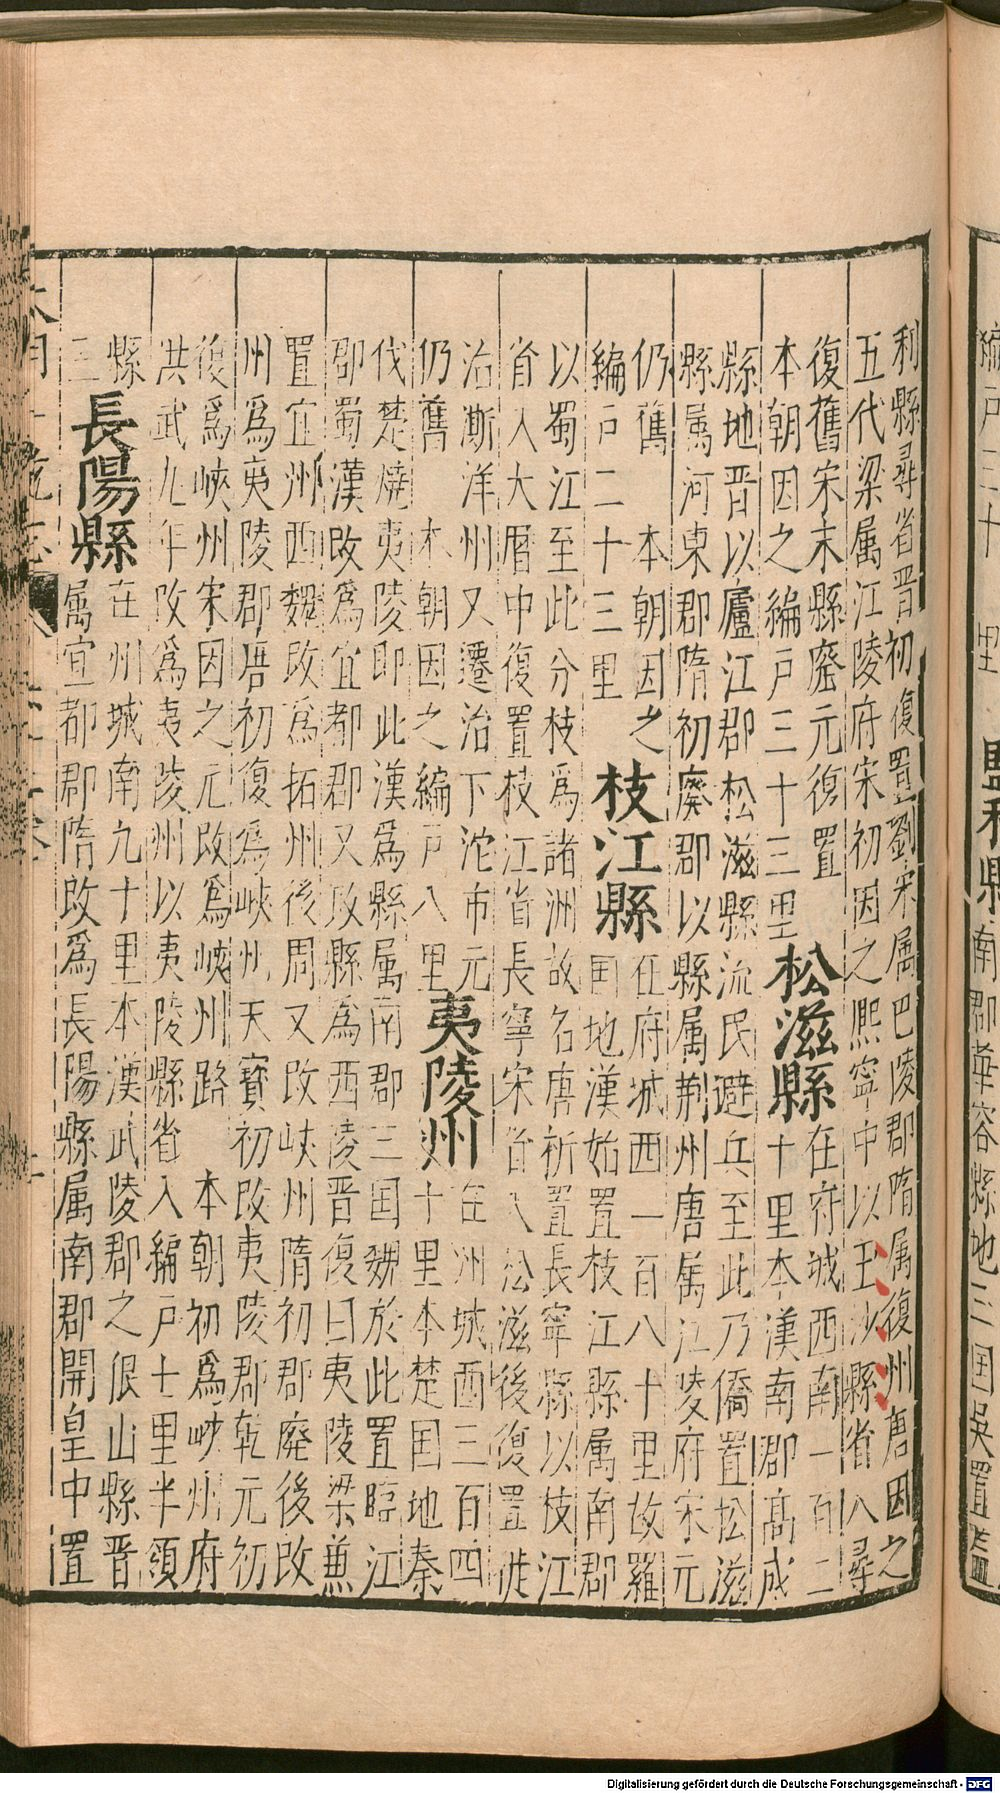 編戶三十 里
監利縣
南郡華容縣地三国吳置監
利縣尋省晋初復置劉宋属巴陵郡隋属復州唐因之
五代梁属江陵府宋初因之熙寧中以玉沙縣省入尋
復舊宋末縣廢元復置
本朝因之編戶三十三里
松滋縣
在府城西南一百二
十里本漢南郡髙成
縣地晋以廬江郡松滋縣流民避兵至此乃僑置松滋
縣属河東郡隋初廢郡以縣属荆州唐属江陵府宋元
仍舊　本朝因之
編戶二十三里
枝江縣
在府城西一百八十里故羅
国地漢始置枝江縣属南郡
以蜀江至此分枝爲諸洲故名唐析置長寧縣以枝江
省入大曆中復置枝江省長寧宋省入松滋後復置徙
治澌洋州又遷治下沱市元
仍舊　本朝因之編戶八里
夷陵州
在州城西三百四
十里本楚国地秦
伐楚燒夷陵即此漢爲縣属南郡三国魏於此置臨江
郡蜀漢改爲宜都郡又改縣爲西陵晋復曰夷陵梁兼
置宜州西魏改爲拓州後周又改峽州隋初郡廢後改
州爲夷陵郡唐初復爲峽州天寶初改夷陵郡乾元初
復爲峽州宋因之元改爲峽州路　本朝初爲峽州府
洪武九年改爲夷陵州以夷陵縣省入編戶七里半領
縣
三
長陽縣
在州城南九十里本漢武陵郡之佷山縣晋
属宜都郡隋改爲長陽縣属南郡開皇中置
Digitalisierung gefördert durch die Deutsche Forschungsgemeinschaft - DFG